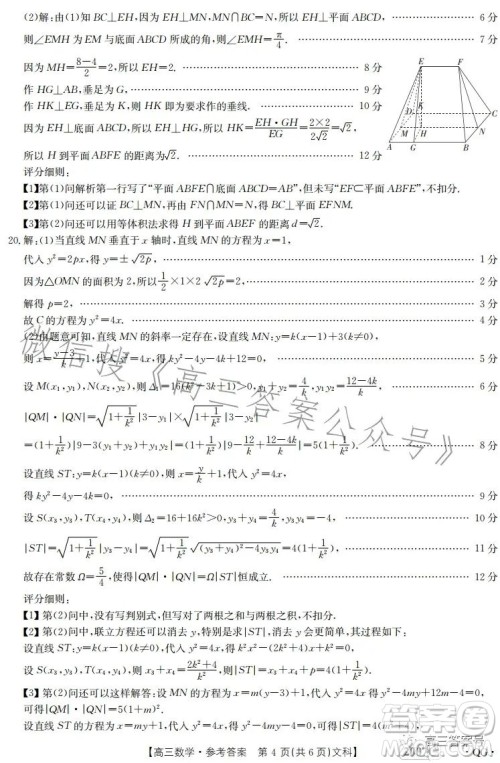 (2)解:由(1)知 BC⊥EH,因为 EH⊥MN,MN∩BC=N,所以 EH⊥平面 ABCD, …… 6 分
则∠EMH 为 EM 与底面 ABCD 所成的角,则∠EMH=π/4. …… 7 分
因为 MH=(8-4)/2=2,所以 EH=2. …… 8 分
作 HG⊥AB,垂足为 G. …… 9 分
作 HK⊥EG,垂足为 K,则 HK 即为要求作的垂线. …… 10 分
因为 EH⊥底面 ABCD,所以 EH⊥HG,所以 HK=(EH·GH)/EG=(2×2)/(2√2)=√2,
所以 H 到平面 ABFE 的距离为√2. …… 12 分
E F D K C M H N A G B
评分细则:
【1】第(1)问解析第一行写了“平面 ABFE∩底面 ABCD=AB”,但未写“EF⊂平面 ABFE”,不扣分.
【2】第(1)问还可以证 BC⊥MN,再由 FN∩MN=N,得 BC⊥平面 EFNM.
【3】第(2)问还可以用等体积法求得 H 到平面 ABEF 的距离 d=√2.
20.解:(1)当直线 MN 垂直于 x 轴时,直线 MN 的方程为 x=1,
代入 y²=2px,得 y=±√(2p), …… 1 分
因为△OMN 的面积为 2,所以 1/2×1×2√(2p)=2, …… 2 分
解得 p=2, …… 3 分
故 C 的方程为 y²=4x. …… 4 分
(2)由题意可知,直线 MN 的斜率一定存在,设直线 MN:y=k(x-1)+3(k≠0),
则 x=(y-3)/k+1,代入 y²=4x,得 ky²-4y-4k+12=0, …… 5 分
设 M(x₁,y₁),N(x₂,y₂),则 Δ₁=16(k²-3k+1)>0,y₁+y₂=4/k,y₁y₂=(12-4k)/k, …… 6 分
|QM|·|QN|=√(1+1/k²)|3-y₁|×√(1+1/k²)|3-y₂|
=(1+1/k²)|9-3(y₁+y₂)+y₁y₂|=(1+1/k²)|9-12/k+(12-4k)/k|=5(1+1/k²). …… 8 分
设直线 ST:y=k(x-1)(k≠0),则 x=y/k+1,代入 y²=4x,
得 ky²-4y-4k=0, …… 9 分
设 S(x₃,y₃),T(x₄,y₄),则 Δ₂=16+16k²>0,y₃+y₄=4/k,y₃y₄=-4, …… 10 分
|ST|=√(1+1/k²)|y₃-y₄|=√(1+1/k²)√((y₃+y₄)²-4y₃y₄)=4(1+1/k²), …… 11 分
故存在常数 Ω=5/4,使得|QM|·|QN|=Ω|ST|恒成立. …… 12 分
评分细则:
【1】第(2)问中,没有写判别式,但写对了两根之和与两根之积,不扣分.
【2】第(2)问中,联立方程还可以消去 y,特别是求|ST|,消去 y 会更简单,其过程如下:
设直线 ST:y=k(x-1)(k≠0),代入 y²=4x,得 k²x²-(2k²+4)x+k²=0,
设 S(x₃,y₃),T(x₄,y₄),则 x₃+x₄=(2k²+4)/k²,则|ST|=x₃+x₄+p=4(1+1/k²).
【3】第(2)问还可以这样解答:设 MN 的方程为 x=m(y-3)+1,代入 y²=4x 得 y²-4my+12m-4=0,
可得|QM|·|QN|=5(1+m²).
设直线 ST 的方程为 x=my+1,代入 y²=4x,得 y²-4my-4=0,可得|ST|=4(m²+1),
【高三数学·参考答案 第 4 页(共 6 页)文科】
微信搜《高三答案公众号》